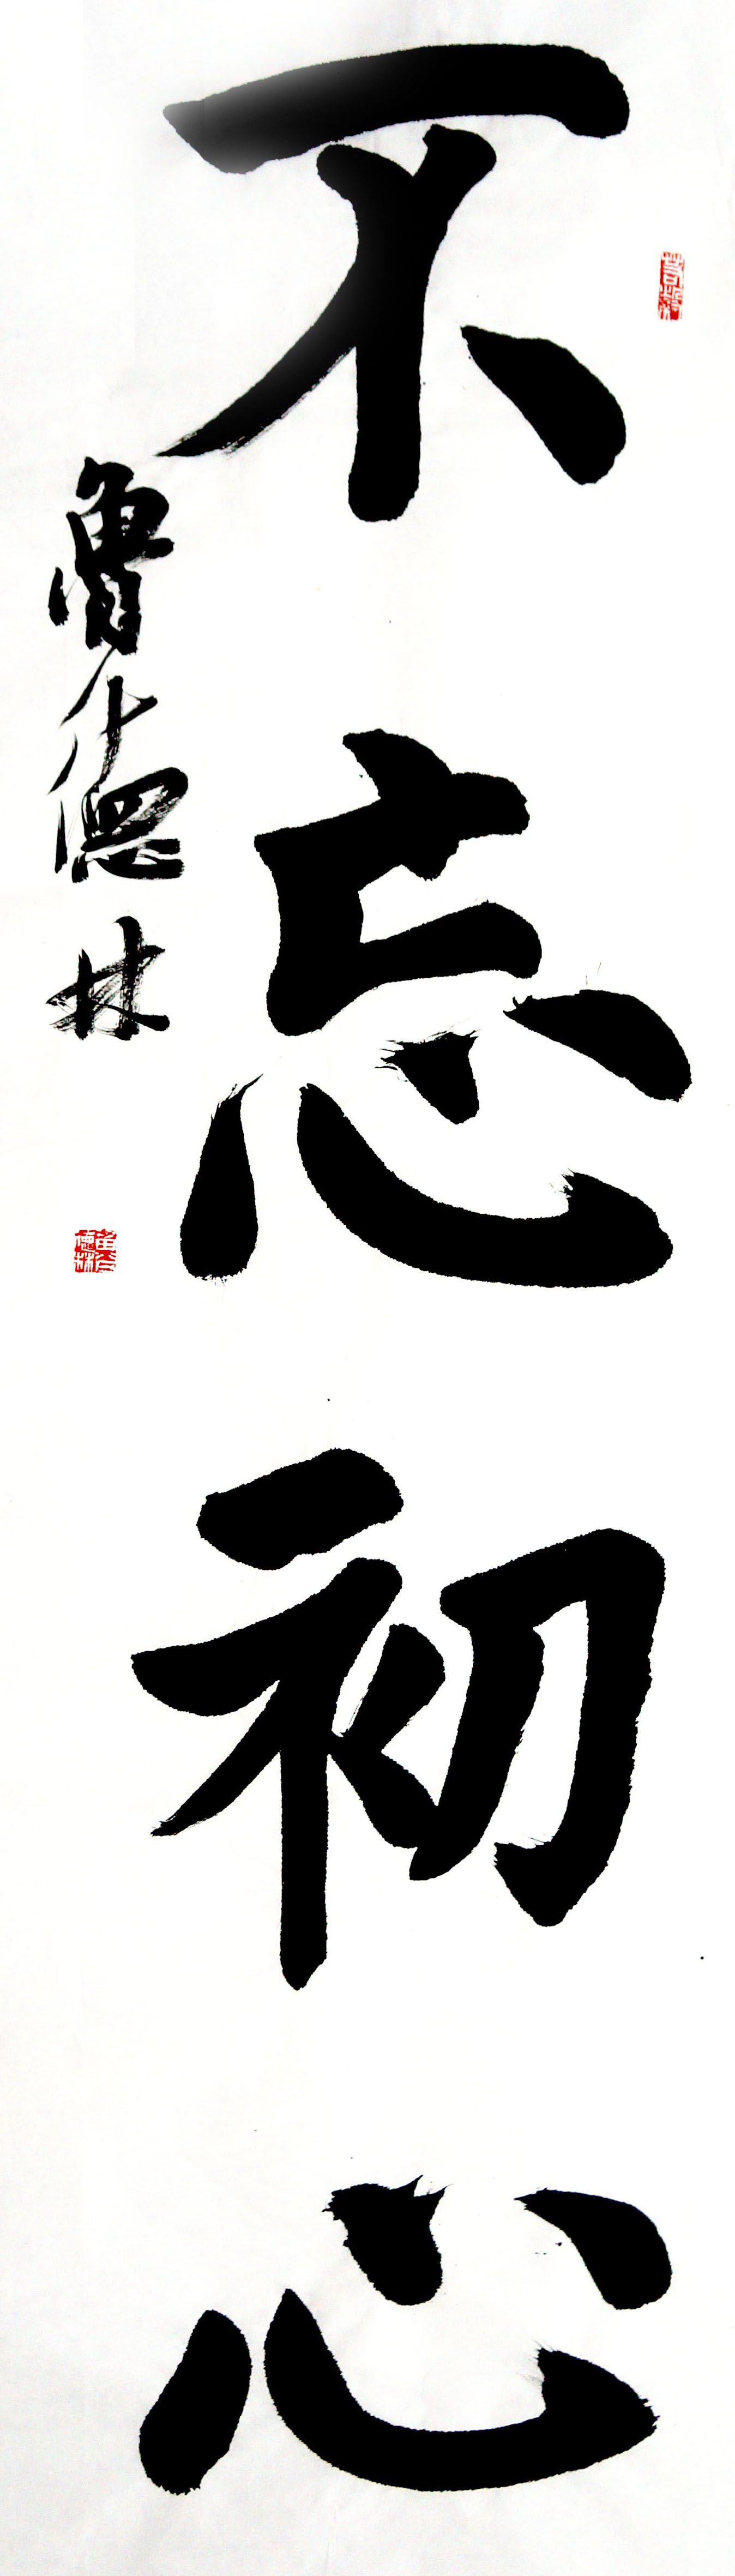 不忘初心
魯德林